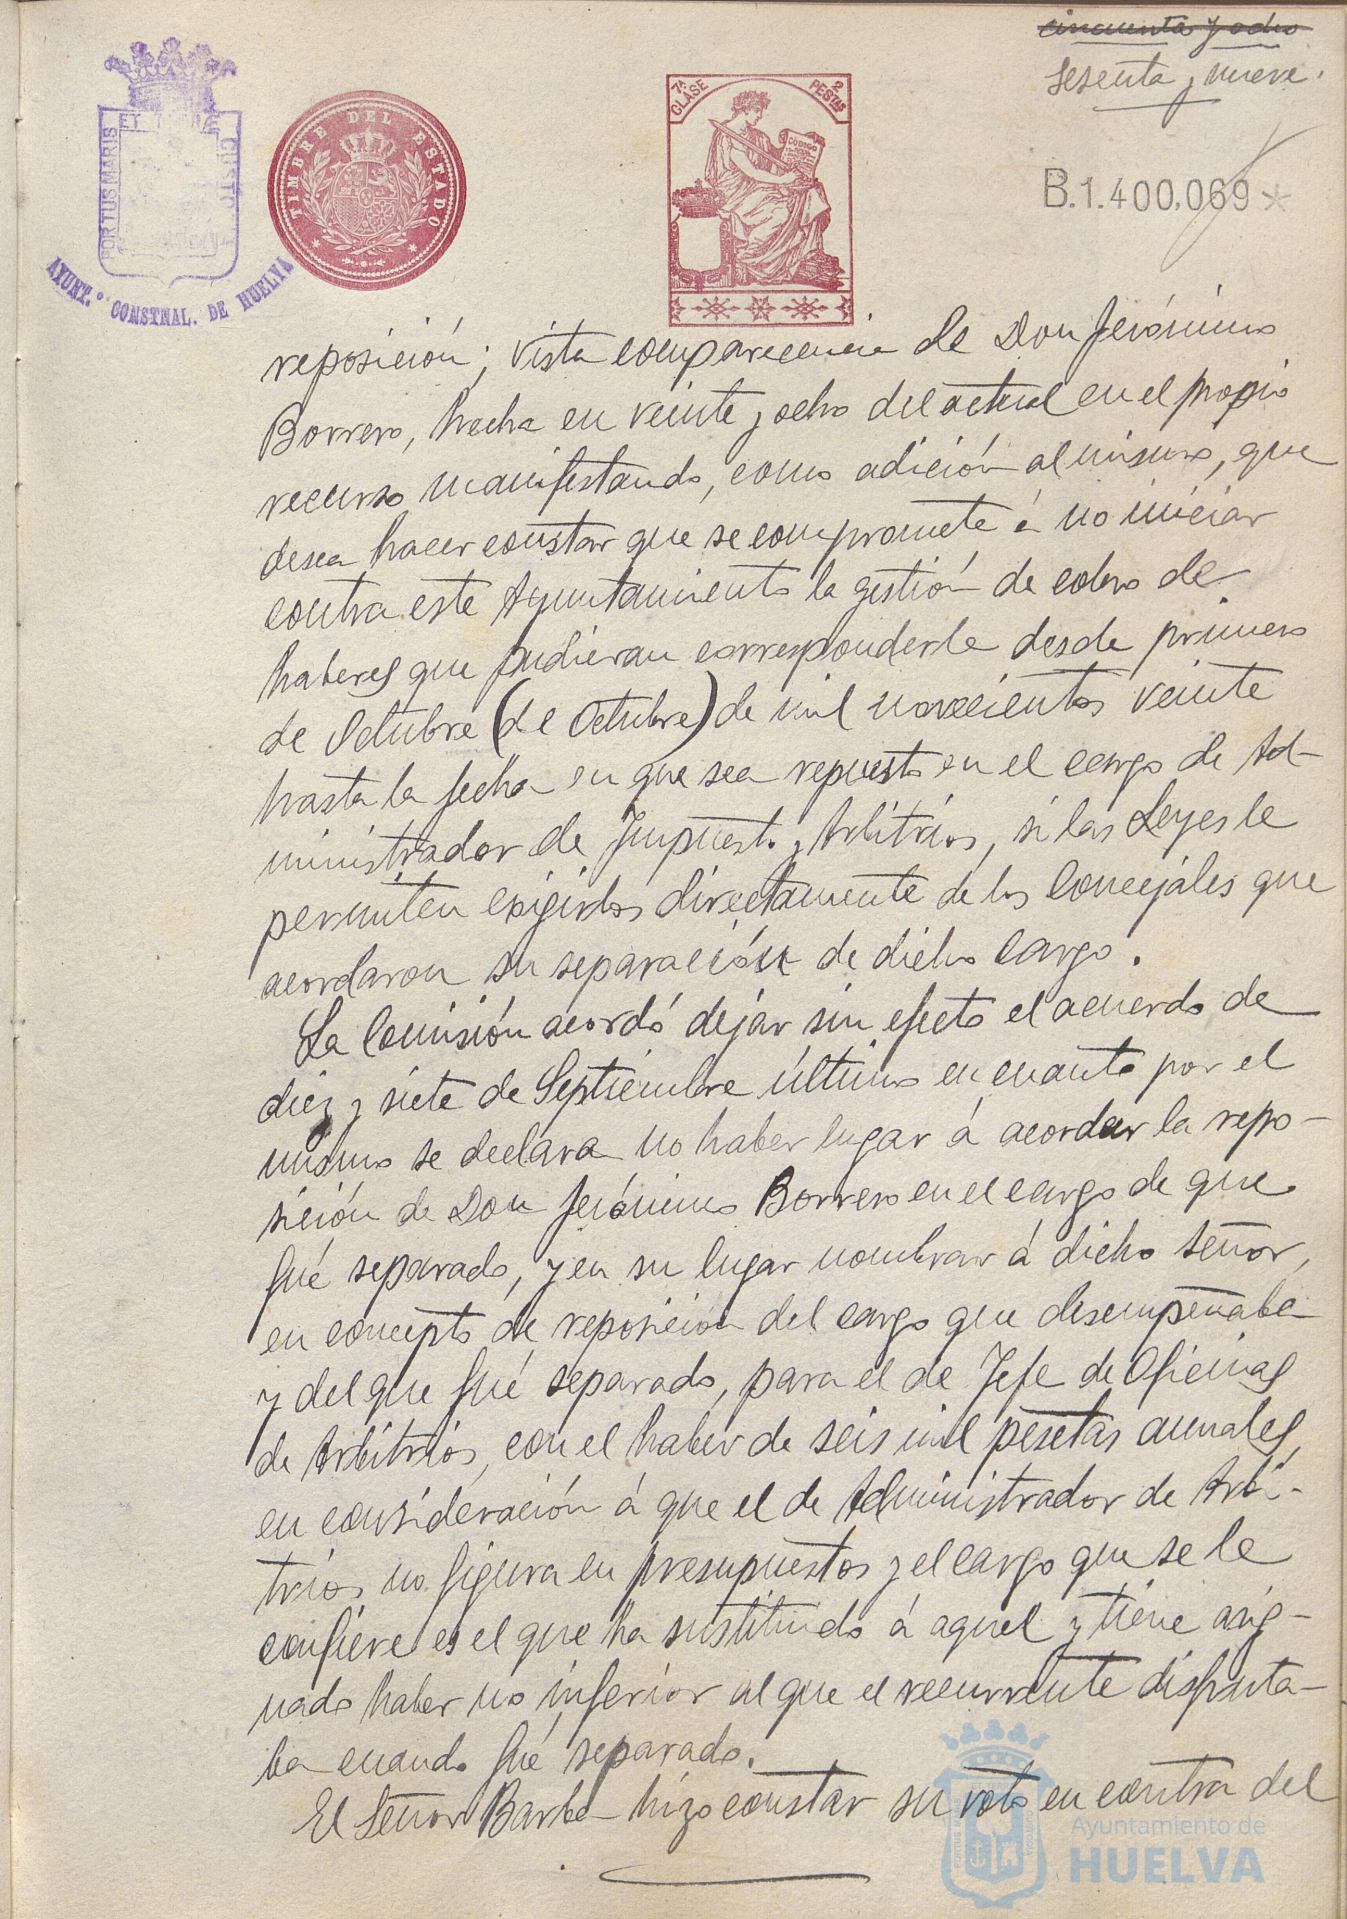 cincuenta y ocho
sesenta y nueve.
7ª CLASE
2 PESTAS
CODIGO
TIMBRE DEL ESTADO
PORTUS MARIS ET TERRÆ CUSTO
AYUNT.º CONSTNAL. DE HUELVA
B.1.400,069*
reposición; vista comparecencia de Don Jerónimo
Borrero, hecha en veinte y ocho del actual en el propio
recurso manifestando, como adición al mismo, que
desea hacer constar que se compromete á no iniciar
contra este Ayuntamiento la gestión de cobro de
haberes que pudieran corresponderle desde primero
de Octubre (de Octubre) de mil novecientos veinte
hasta la fecha en que sea repuesto en el cargo de Ad-
ministrador de Impuestos y Arbitrios, si las Leyes le
permiten exigirlos directamente de los Concejales que
acordaron su separación de dicho cargo.
La Comisión acordó dejar sin efecto el acuerdo de
diez y siete de Septiembre último en cuanto por el
mismo se declara no haber lugar á acordar la repo-
sición de Don Jerónimo Borrero en el cargo de que
fué separado, y en su lugar nombrar á dicho señor,
en concepto de reposición del cargo que desempeñaba
y del que fué separado, para el de Jefe de Oficinas
de Arbitrios, con el haber de seis mil pesetas anuales,
en consideración á que el de Administrador de Arbi-
trios no figura en presupuestos y el cargo que se le
confiere es el que ha sustituido á aquel y tiene asig-
nado haber no inferior al que el recurrente disfruta-
ba cuando fué separado.
El Señor Barba hizo constar su voto en contra del
Ayuntamiento de
HUELVA